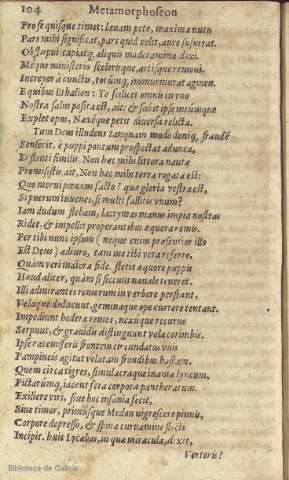 104 Metamorphoseon
Pro se quisque timet: leuam pete, maxima nutu
Pars mihi significat, pars quid velit, aure susurrat.
Obstupui, capiatq́, aliquis moderamina, dixi.
Méque ministerio scelerisque, artisque remoui.
Increpor à cunctis, totúmq, immurmurat agmen.
E quibus Ethalion: Te scilicet omnis in vno
Nostra salus posita est, ait: & subit ipse meúmque
Explet opus, Naxóque petit diuersa relicta.
Tum Deus illudens tanquam modò deniq, fraudē
Senserit, è puppi pontum prospectat adunca,
Et flenti similis, Non hæc mihi littora nautæ
Promisistis, ait, Non hæc mihi terra rogata est:
Quo merui pœnam facto? quæ gloria vestra est,
Si puerum iuuenes, si multi fallitis vnum?
Iam dudum flebam, lacrymas manus impia nostras
Ridet, & impellit properantibus æquora remis.
Per tibi nunc ipsum (neque enim præsentior illo
Est Deus) adiuro, tam me tibi vera referre,
Quàm veri maiora fide. stetit æquore puppis
Haud aliter, quàm si siccum nauale teneret.
Illi admirantes remorum in verbere perstant,
Velaque deducunt, geminaque ope currere tentant.
Impediunt hederæ remos, nexúque recuruo
Serpunt, & grauidis distinguunt vela corimbis.
Ipse racemiferis frontem circundatus vuis
Pampineis agitat velatam frondibus hastam.
Quem circa tigres, simulacraque inania lyncum,
Pictarúmq, iacent fera corpora pantherarum.
Exiliere viri, siue hoc insania fecit,
Siue timor, primúsque Medon nigrescere pinnis,
Corpore depresso, & spinæ curuamine flecti
Incipit. huic Lycabas, in quæ miracula, dixit,
Verteris?
Biblioteca de Galicia